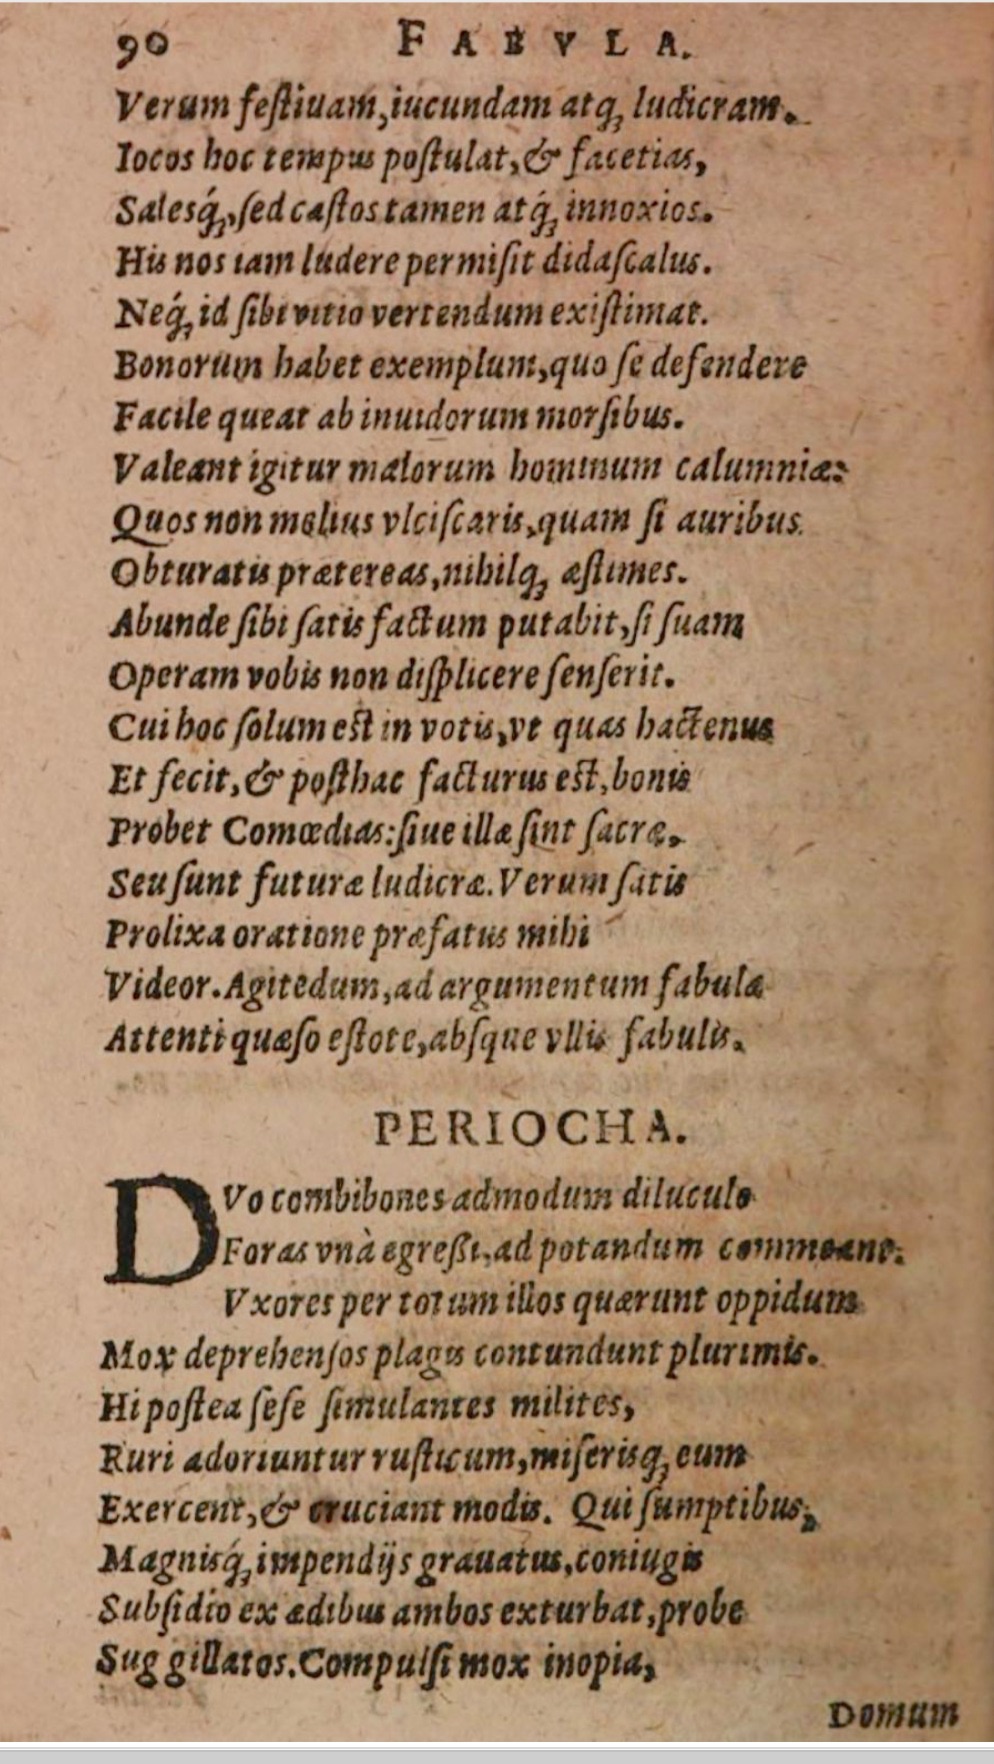 90 FABVLA.
Verum feſtiuam,iucundam atq; ludicram.
Iocos hoc tempus poſtulat,& facetias,
Salesq́;,ſed caſtos tamen atq́; innoxios.
His nos iam ludere permiſit didaſcalus.
Neq́; id ſibi vitio vertendum exiſtimat.
Bonorum habet exemplum,quo ſe defendere
Facile queat ab inuidorum morſibus.
Valeant igitur malorum hominum calumniæ:
Quos non melius vlciſcaris,quam ſi auribus
Obturatis prætereas,nihilq; æſtimes.
Abunde ſibi ſatis factum putabit,ſi ſuam
Operam vobis non diſplicere ſenſerit.
Cui hoc ſolum eſt in votis,vt quas hactenus
Et fecit,& poſthac facturus eſt,bonis
Probet Comœdias:ſiue illæ ſint ſacræ,
Seu ſunt futuræ ludicræ.Verum ſatis
Prolixa oratione præfatus mihi
Videor.Agitedum,ad argumentum fabulæ
Attenti quæſo eſtote,abſque vllis fabulis.
PERIOCHA.
DVo combibones admodum diluculo
Foras vnà egreßi,ad potandum commeant:
Vxores per totum illos quærunt oppidum
Mox deprehenſos plagis contundunt plurimis.
Hi poſtea ſeſe ſimulantes milites,
Ruri adoriuntur ruſticum,miſerisq; eum
Exercent,& cruciant modis. Qui ſumptibus,
Magnisq́; impendijs grauatus,coniugis
Subſidio ex ædibus ambos exturbat,probe
Suggillatos.Compulſi mox inopia,
Domum